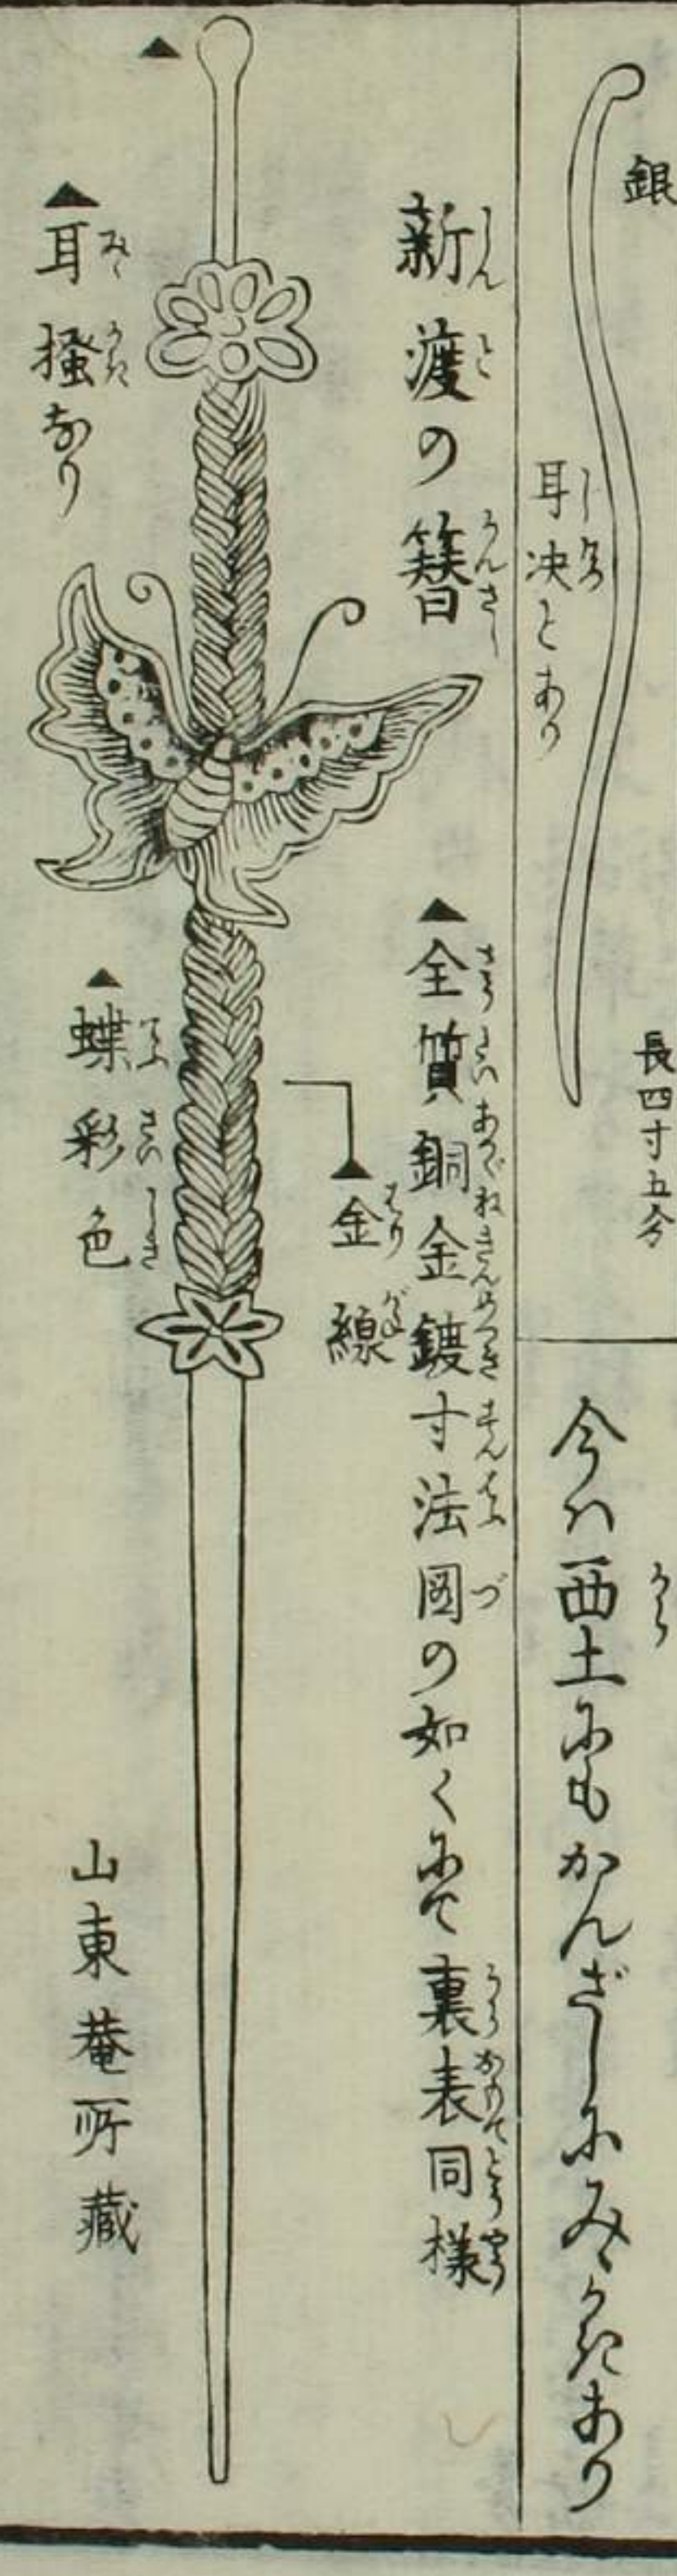 銀
耳决とあり
長四寸五分
今ハ西土にもかんざしにみゝかきあり
新渡の簪
▲全質銅金鍍寸法図の如くにて裏表同様
▲金線
▲
▲耳掻なり
▲蝶彩色
山東菴所蔵